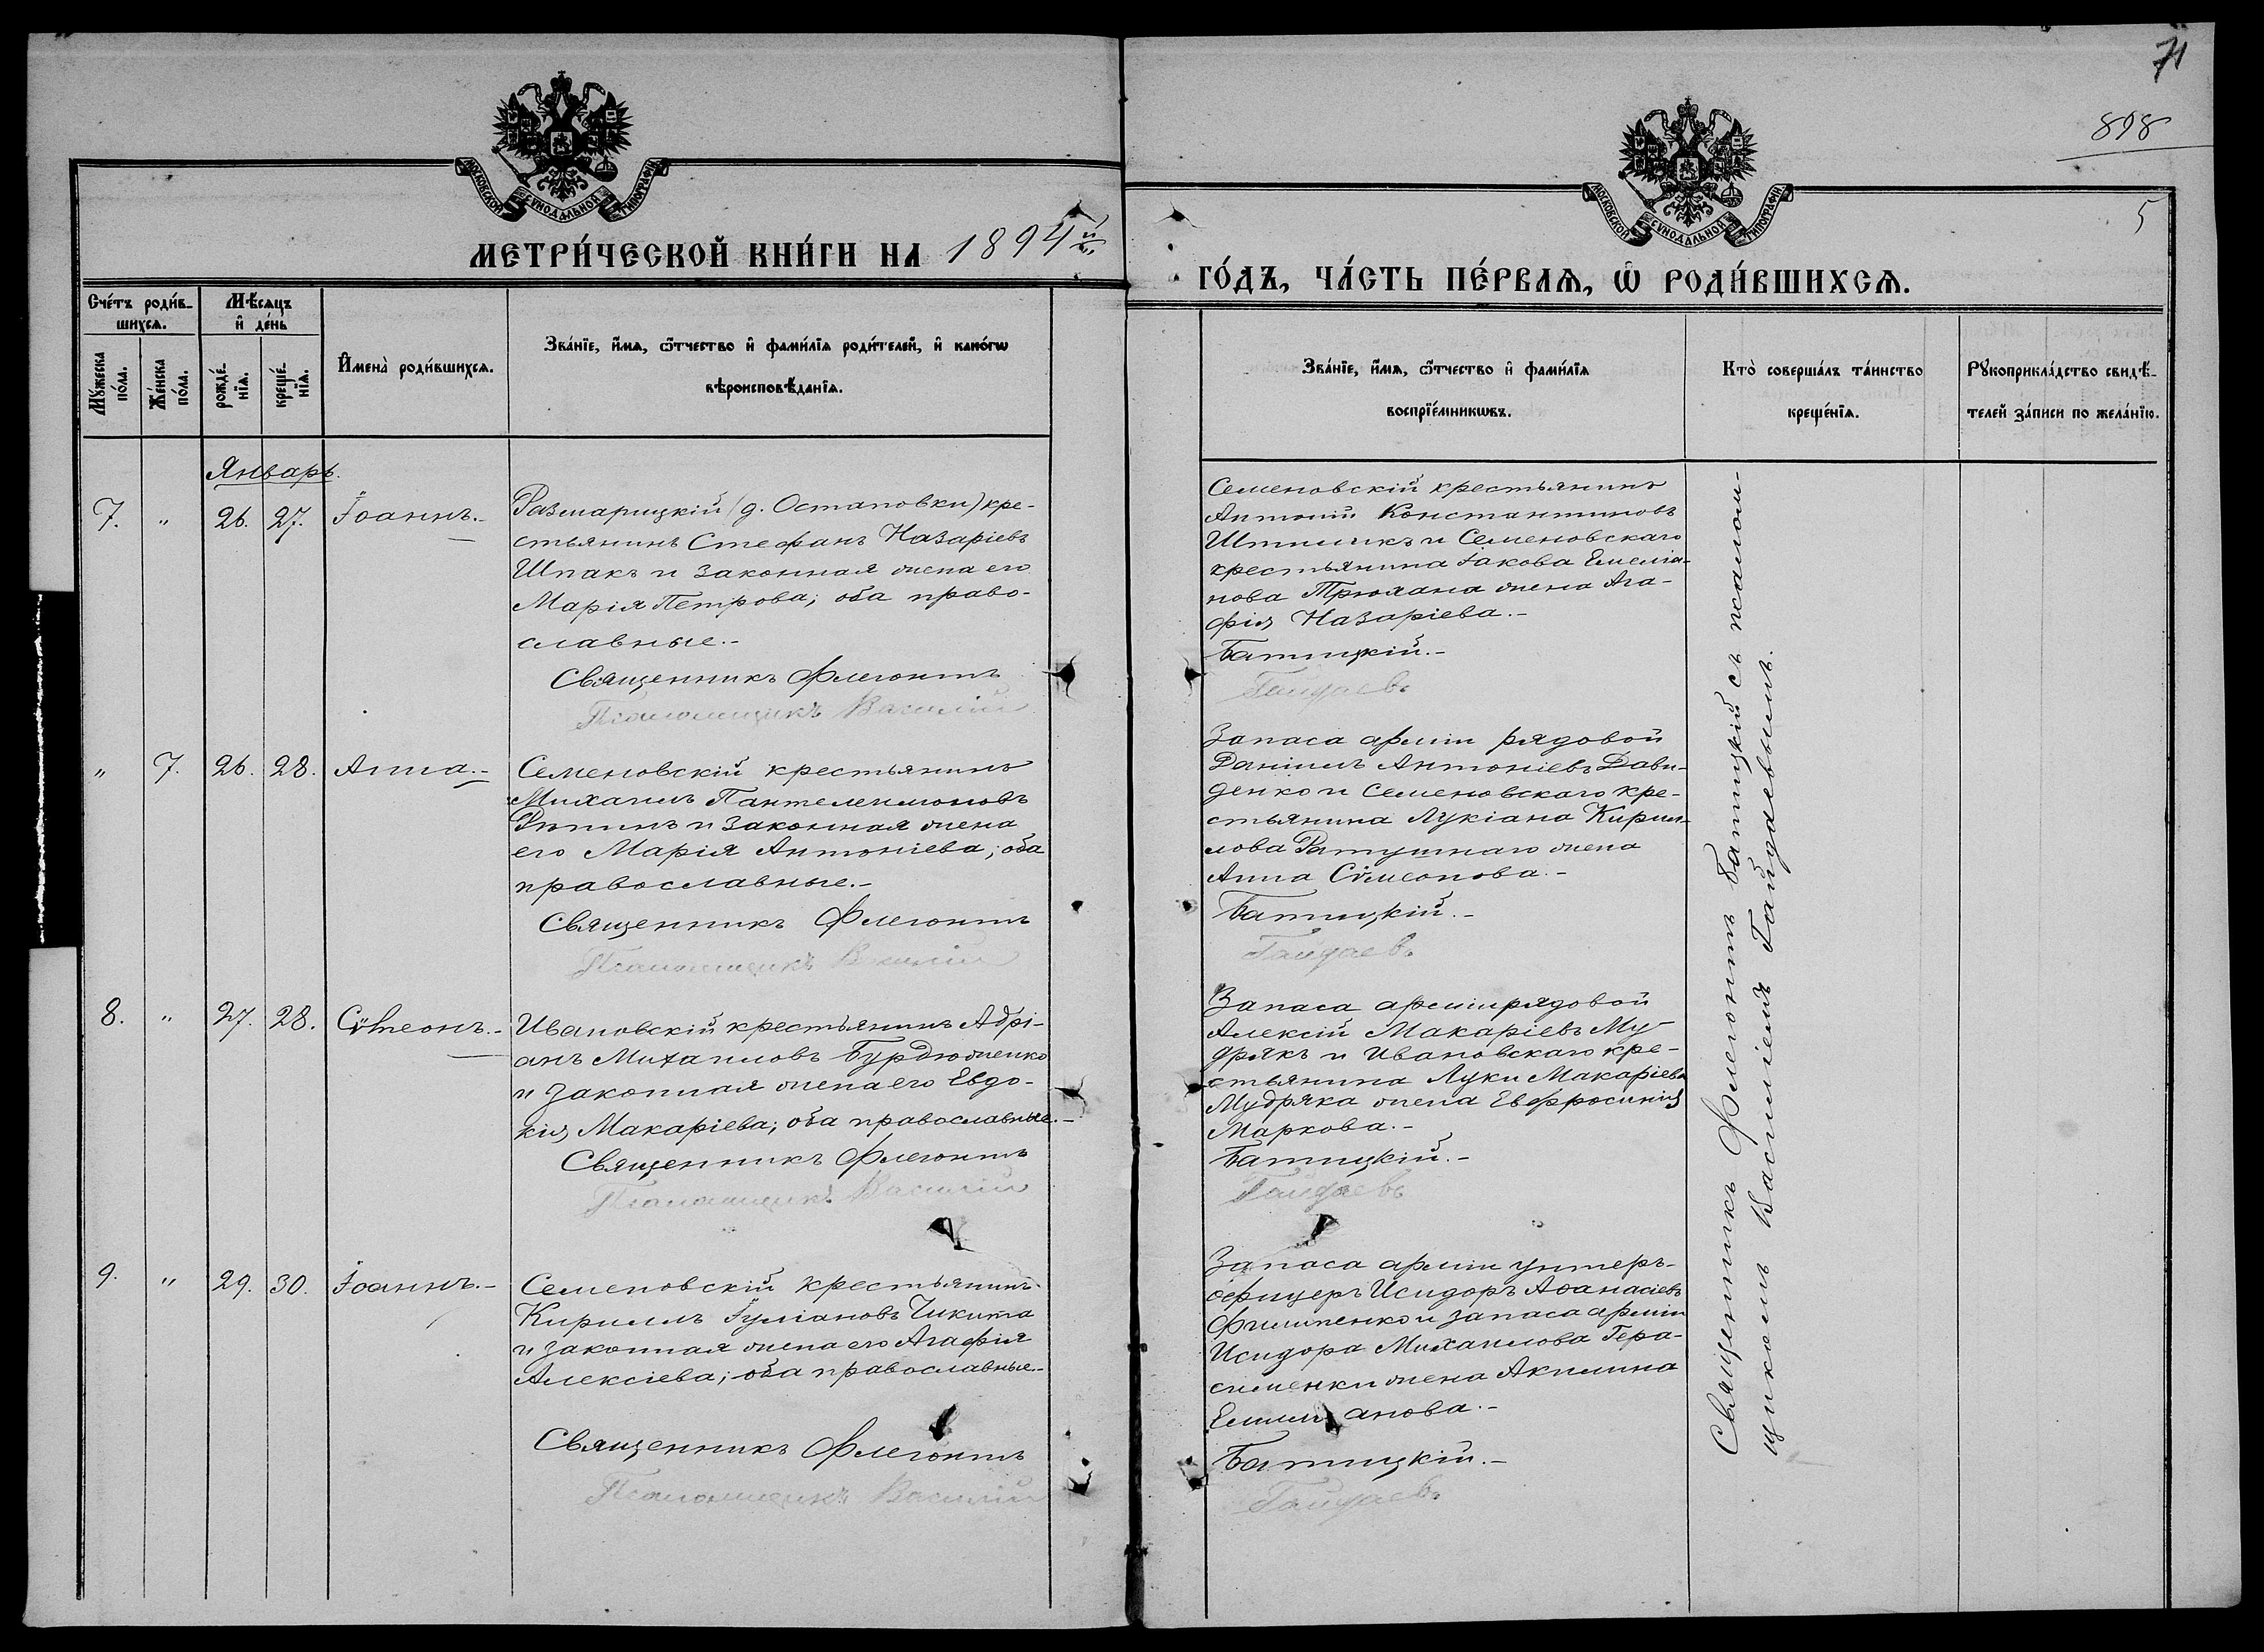 71
898
5
МОСКОВСКОЙ СУНОДАЛЬНОЙ ТИПОГРАФІИ
МОСКОВСКОЙ СУНОДАЛЬНОЙ ТИПОГРАФІИ
МЕТРИ́ЧЕСКОЙ КНИ́ГИ НА 1894й
ГО́ДЪ, ЧА́СТЬ ПЕ́РВАѦ, Ѡ РОДИ́ВШИХСѦ.
Сче́тъ роди́в-
шихсѧ.
Мѣ́сѧцъ
и҆ де́нь
Мꙋ́жеска
по́ла.
Же́нска
по́ла.
рожде́-
нїѧ.
креще́-
нїѧ.
И҆мена̀ роди́вшихсѧ.
Зва́нїе, и҆́мѧ, ѻ҆́тчество и҆ фами́лїѧ роди́телей, и҆ како́гѡ
вѣроисповѣ́данїѧ.
Зва́нїе, и҆́мѧ, ѻ҆́тчество и҆ фами́лїѧ
воспрїе́мникѡвъ.
Кто̀ соверша́лъ та́инство
креще́нїѧ.
Рꙋкоприкла́дство свидѣ́-
телей за́писи по жела́нїю.
Январь.
7. " 26. 27. Іоаннъ.-
Размарицкій (д. Остаповки) кре-
стьянинъ Стефанъ Назаріевъ
Шпакъ и законная жена его
Марія Петрова; оба право-
славные.-
Священникъ Флегонтъ
Псаломщикъ Василій
Семеновскій крестьянинъ
Антоній Константиновъ
и Семеновскаго
крестьянина Іакова Емелiа-
нова жена Ага-
фія Назаріева.-
Батицкій.-
Гайдаевъ
" 7. 26. 28. Анна.-
Семеновскій крестьянинъ
Михаилъ Пантелеимоновъ
и законная жена
его Марія Антоніева; оба
православные.-
Священникъ Флегонтъ
Псаломщикъ Василій
Запаса арміи рядовой
Даніилъ Антоніевъ Дави-
денко и Семеновскаго кре-
стьянина Лукіана Кирил-
лова Ратушнаго жена
Анна Сѵмеонова.-
Батицкій.-
Гайдаевъ
8. " 27. 28. Сѵмеонъ.-
Ивановскій крестьянинъ Адрі-
анъ Михаиловъ Бурдюженко
и законная жена его Евдо-
кія Макаріева; оба православные.-
Священникъ Флегонтъ
Псаломщикъ Василій
Запаса арміи рядовой
Алексій Макаріевъ Му-
дрякъ и Ивановскаго кре-
стьянина Луки Макаріева
Мудряка жена Евфросинія
Маркова.-
Батицкій.-
Гайдаевъ
9. " 29. 30. Іоаннъ.-
Семеновскій крестьянинъ
Кириллъ Іуліановъ Чикита
и законная жена его Агафія
Алексіева; оба православные.-
Священникъ Флегонтъ
Псаломщикъ Василій
Запаса арміи унтеръ-
офицеръ Исидоръ Аѳанасіевъ
Филипенко и запаса арміи
Исидора Михаилова Гера-
сименки жена Акилина
Емиліанова.-
Батицкій.-
Гайдаевъ
Священникъ Флегонтъ Батицкій съ псалом-
щикомъ Василіемъ Гайдаевымъ.